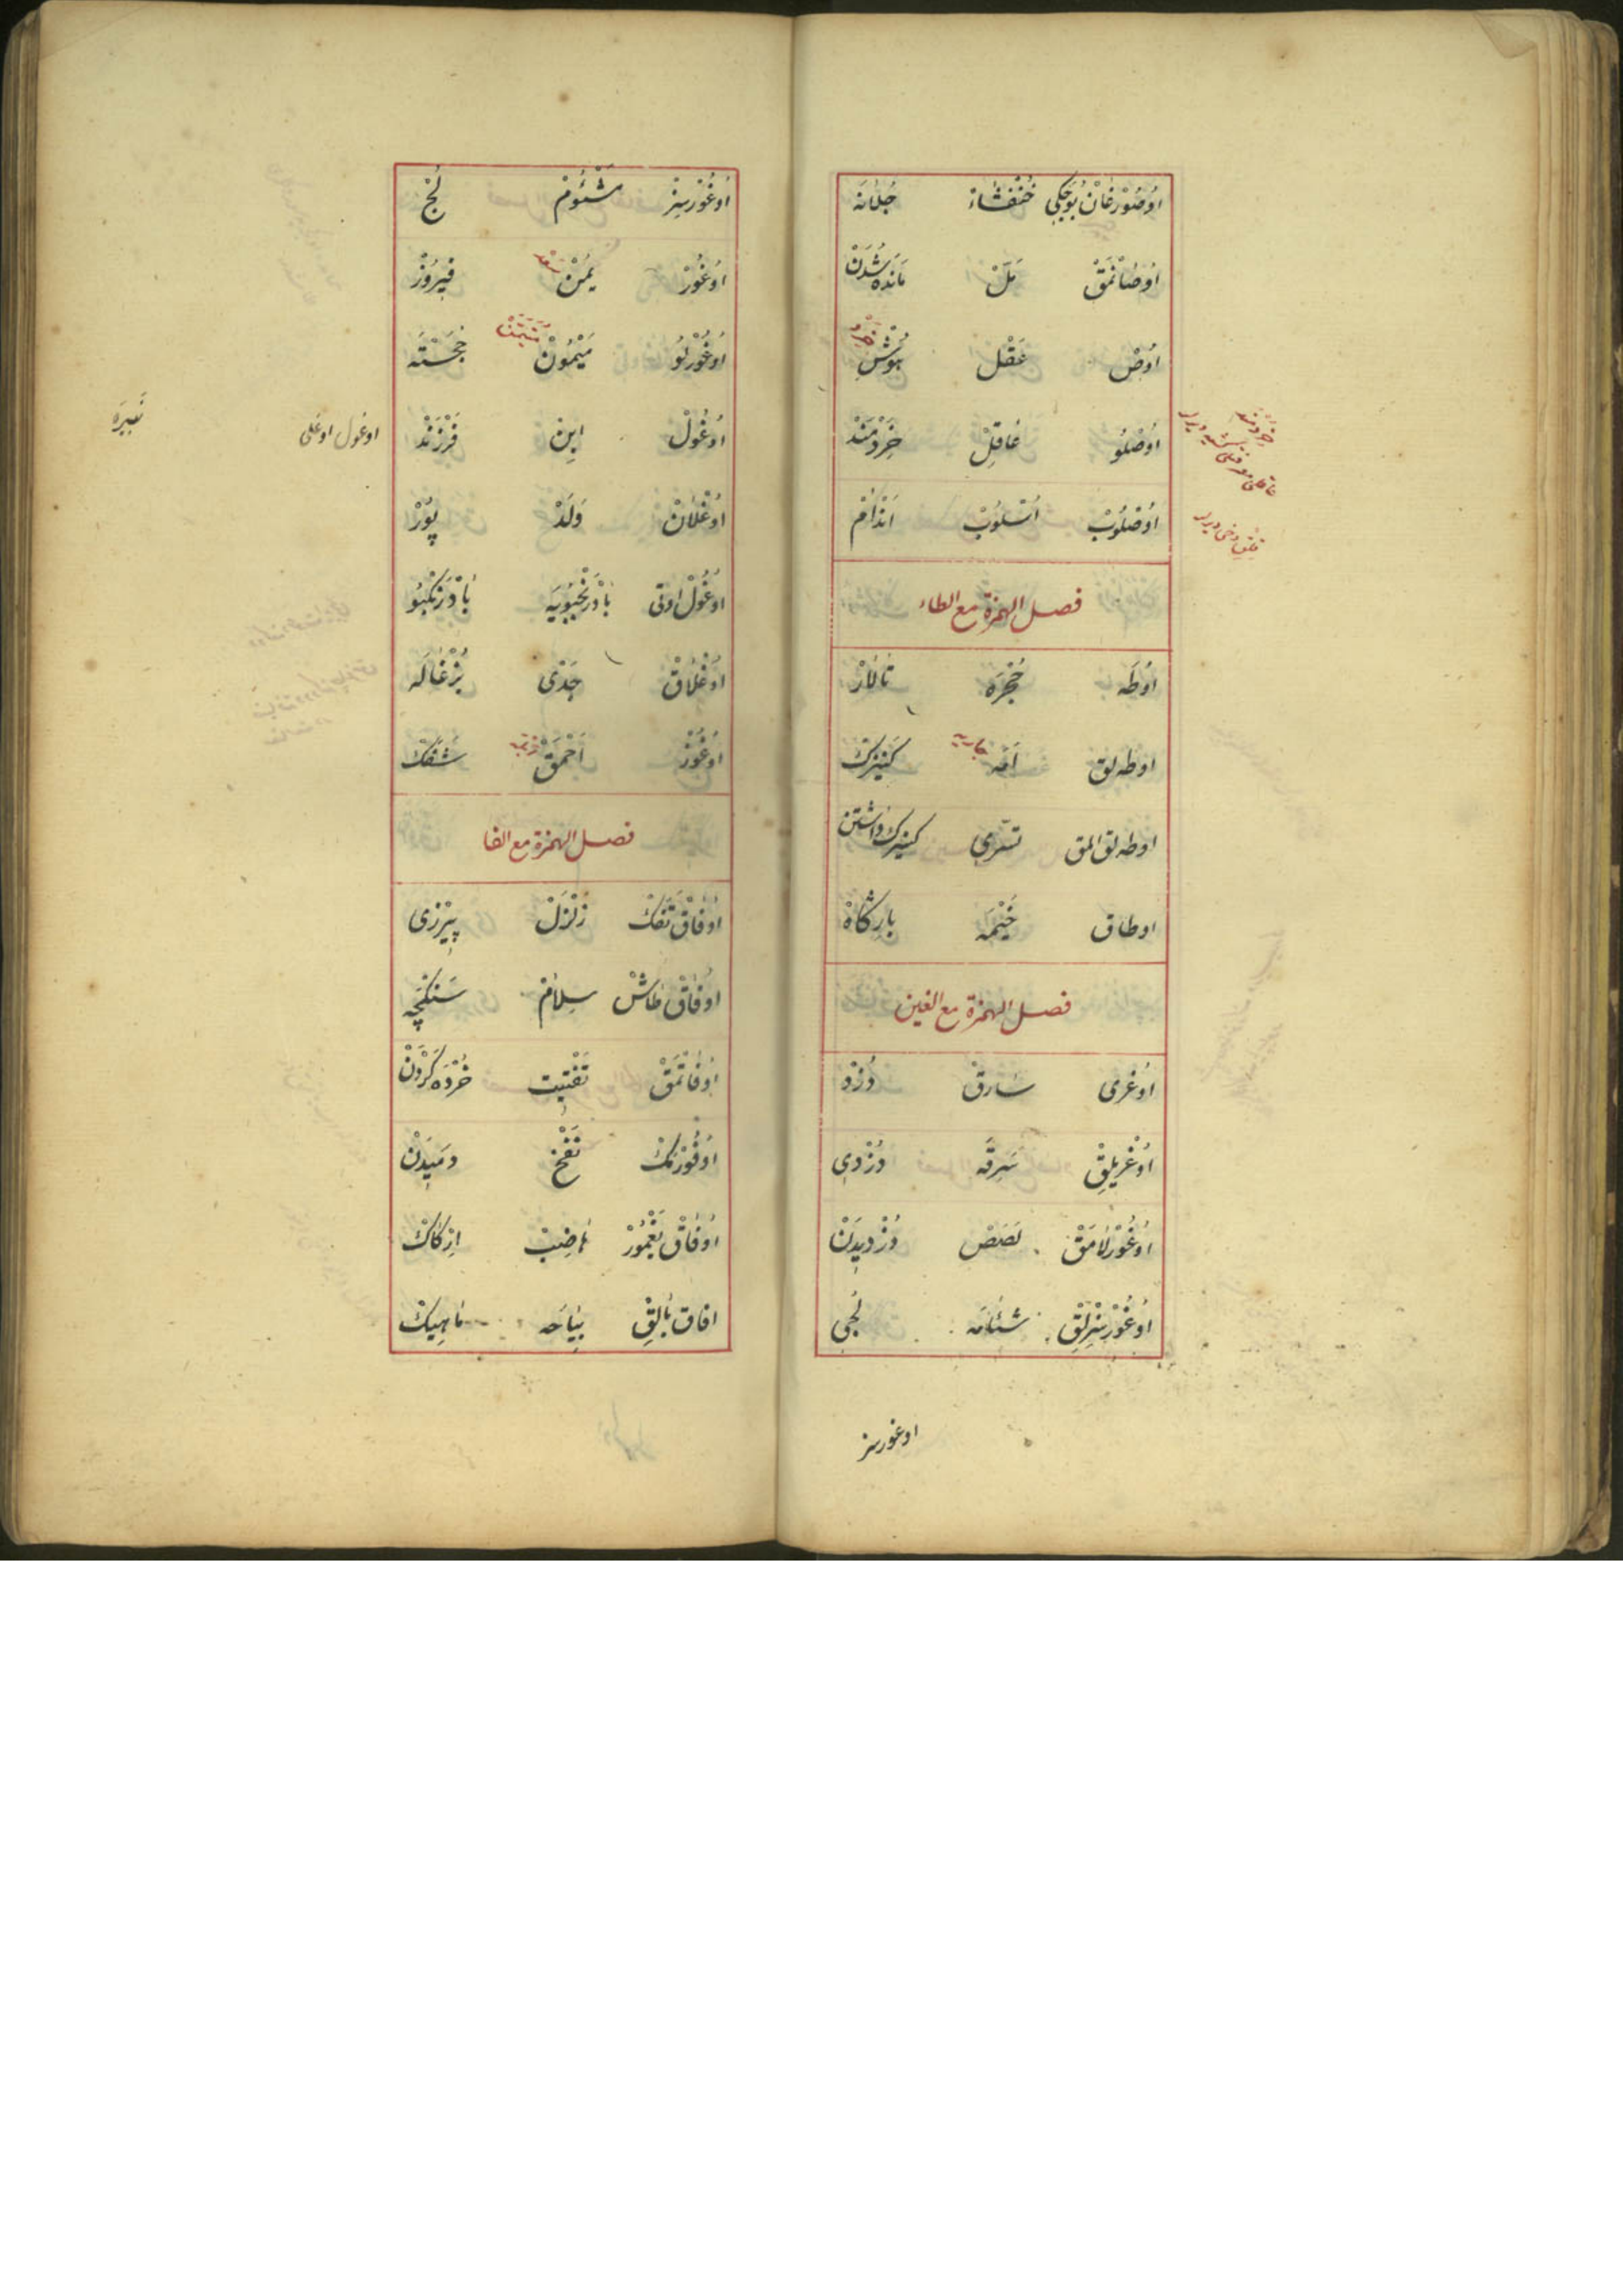 اُوصُورْغَانْ بُوجَكِي خُنْفَسَاءْ جُلَانَه
اُوصَانْمَقْ مَلّ مَانْدَه شُدَنْ
اُوصْ عَقْل هُوشِ خرد
اُوصْلُو عَاقِلْ خِرَدْمَنْدْ
خردمند
اُوصْلُوبْ اُسْلُوبْ اَنْدَامْ
فصل الهمزة مع الطاء
اُوطَه حُجْرَه تَالَارْ
اوطه لق اَمَه جاريه كَنِيزَكْ
اوطه لق المق تسرّي كنيزك داشتن
اوطاق خَيْمَه بارِكَاهْ
فصل الهمزة مع الغين
اُوغرى سَارِقْ دُزْد
اُوغْرِيلِقْ سَرِقَه دُزْدِي
اُوغُورْلَامَقْ لَصَصْ دُزْدِيدَنْ
اُوغُورْسِزْلِقْ شَئَامَه لُجِي
اوغورسز
اُوغُورْسِزْ مَشْئُومْ لُجْ
اُوغُورْ يُمْنْ سعد فِيرُوزْ
اُوغُورْلُو مَيْمُونْ مُتَيَمِّنْ خُجَسْتَه
اُوغُولْ ابِن فَرْزَنْدْ
اوغول اوغلى نَبِيرَه
اُوغْلَانْ وَلَدْ پُورْ
اُوغُولْ اوتى بَادَرَنْجُبُويَه بَادْرَنْكْبُو
اُوغْلَاقْ جَدْى بُزْغَالَه
اُوغُوزْ اَحْمَقْ شَفَكْ
فصل الهمزة مع الفا
اُوفَاقْ تَفَكْ زَلْزَلْ پِيرْزِى
اُوفَاقْ طَاشْ سِلَامْ سَنْكِچَه
اُوفَاتْمَقْ تَفْتِيت خُرْدَه كَرْدَنْ
اُوفُورْمَكْ نَفْخْ دَمِيدَنْ
اُوفَاقْ يَغْمُورْ هَاضِبْ ازكَاكْ
افاق بَالِقْ بِيَاحَه مَاهِيكْ